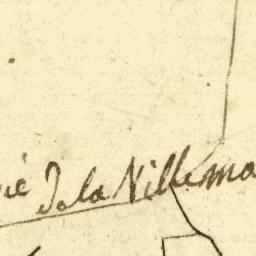 de la Villema